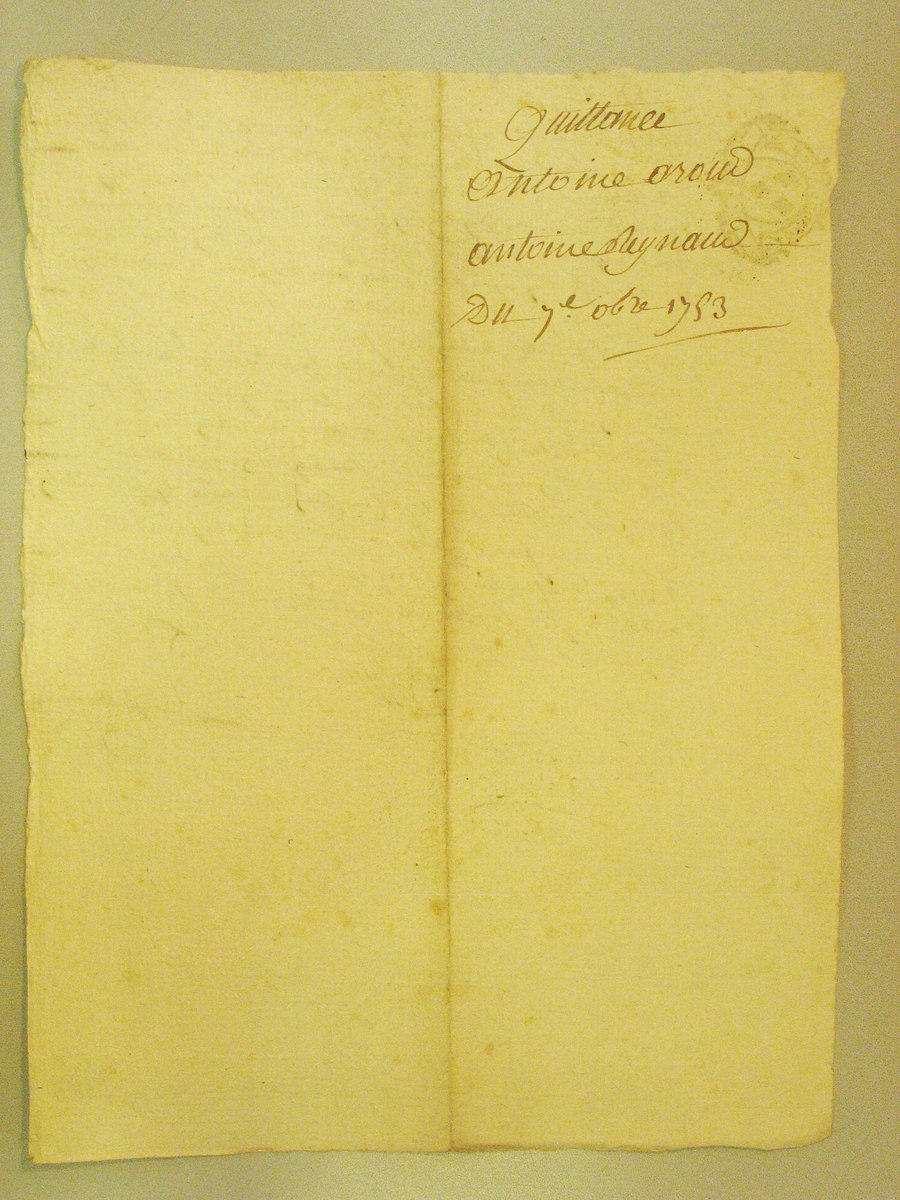 Quittance
Antoine aroud
antoine Reynaud
Du 7e. obre 1753